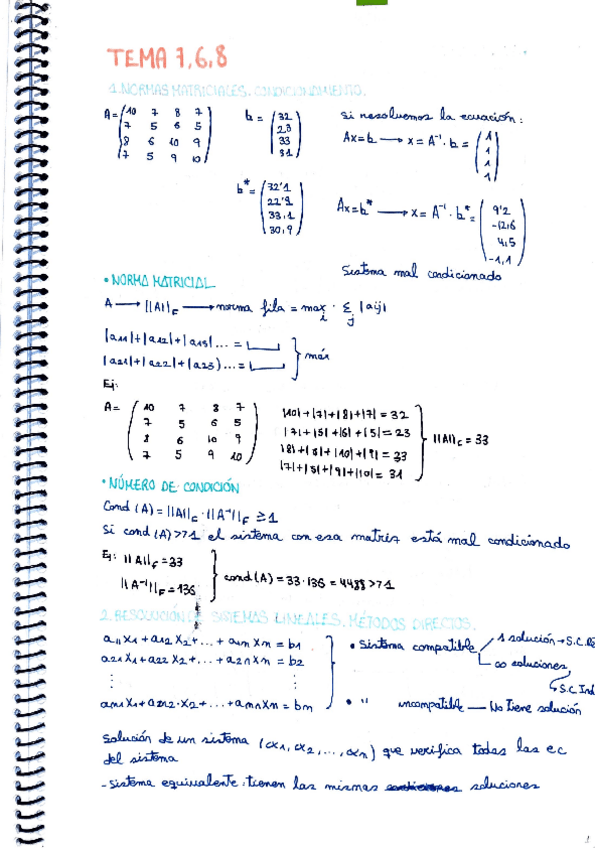 TEMA 7,6,8
1. NORMAS MATRICIALES. CONDICIONAMIENTO.
A = (10 7 8 7
7 5 6 5
8 6 10 9
7 5 9 10)
b = (32
23
33
31)
Si resolvemos la ecuación:
Ax=b → x = A⁻¹·b = (1
1
1
1)
b* = (32'1
22'9
33,1
30,9)
Ax=b* → x = A⁻¹·b* = (9'2
-12,6
4,5
-1,1)
Sistema mal condicionado
• NORMA MATRICIAL
A → ||A||F → norma fila = max i · Σ j |aij|
|a11|+|a12|+|a13|... =
|a21|+|a22|+|a23)... =
} máx
Ej:
A = (10 7 8 7
7 5 6 5
8 6 10 9
7 5 9 10)
|10|+|7|+|8|+|7| = 32
|7|+|5|+|6|+|5| = 23
|8|+|6|+|10|+|9| = 33
|7|+|5|+|9|+|10| = 31
} ||A||F = 33
• NÚMERO DE CONDICIÓN
Cond (A) = ||A||F · ||A⁻¹||F ≥ 1
Si cond (A)>>1 el sistema con esa matriz está mal condicionado
Ej: ||A||F = 33
||A⁻¹||F = 136
} cond(A) = 33·136 = 4488 >>1
2. RESOLUCIÓN DE SISTEMAS LINEALES. MÉTODOS DIRECTOS.
a11x1 + a12x2 + ... + a1nxn = b1
a21x1 + a22x2 + ... + a2nxn = b2
⋮ ⋮
am1x1 + am2·x2 + ... + amnxn = bm
• Sistema compatible
1 solución → S.C.
∞ soluciones
→ S.C Ind
• " incompatible — No tiene solución
Solución de un sistema (α1, α2, ..., αn) que verifica todas las ec
del sistema
- Sistema equivalente: tienen las mismas soluciones
1